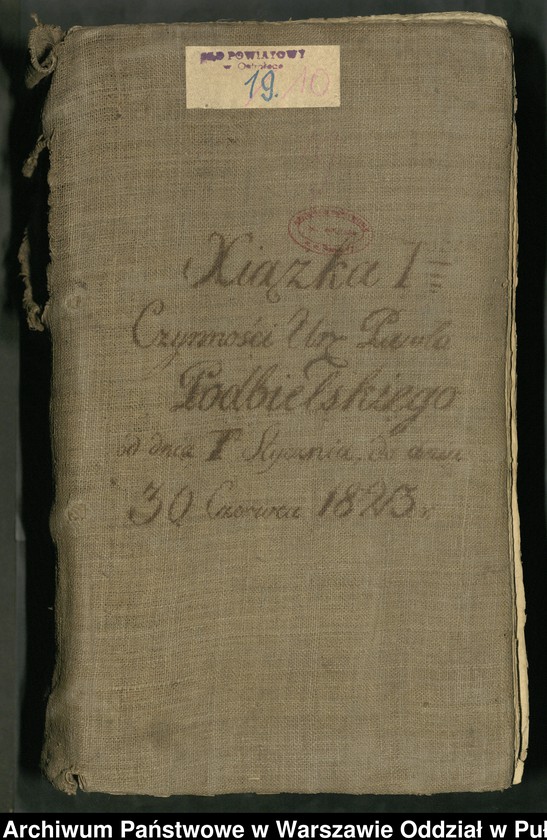 SĄD POWIATOWY
w Ostrołęce
19. 10
Xiązka I
Czynności Urz Pawła
Podbielskiego
od dnia 1 Stycznia do dnia
30 Czerwca 1823 r
Archiwum Państwowe w Warszawie Oddział w Puł